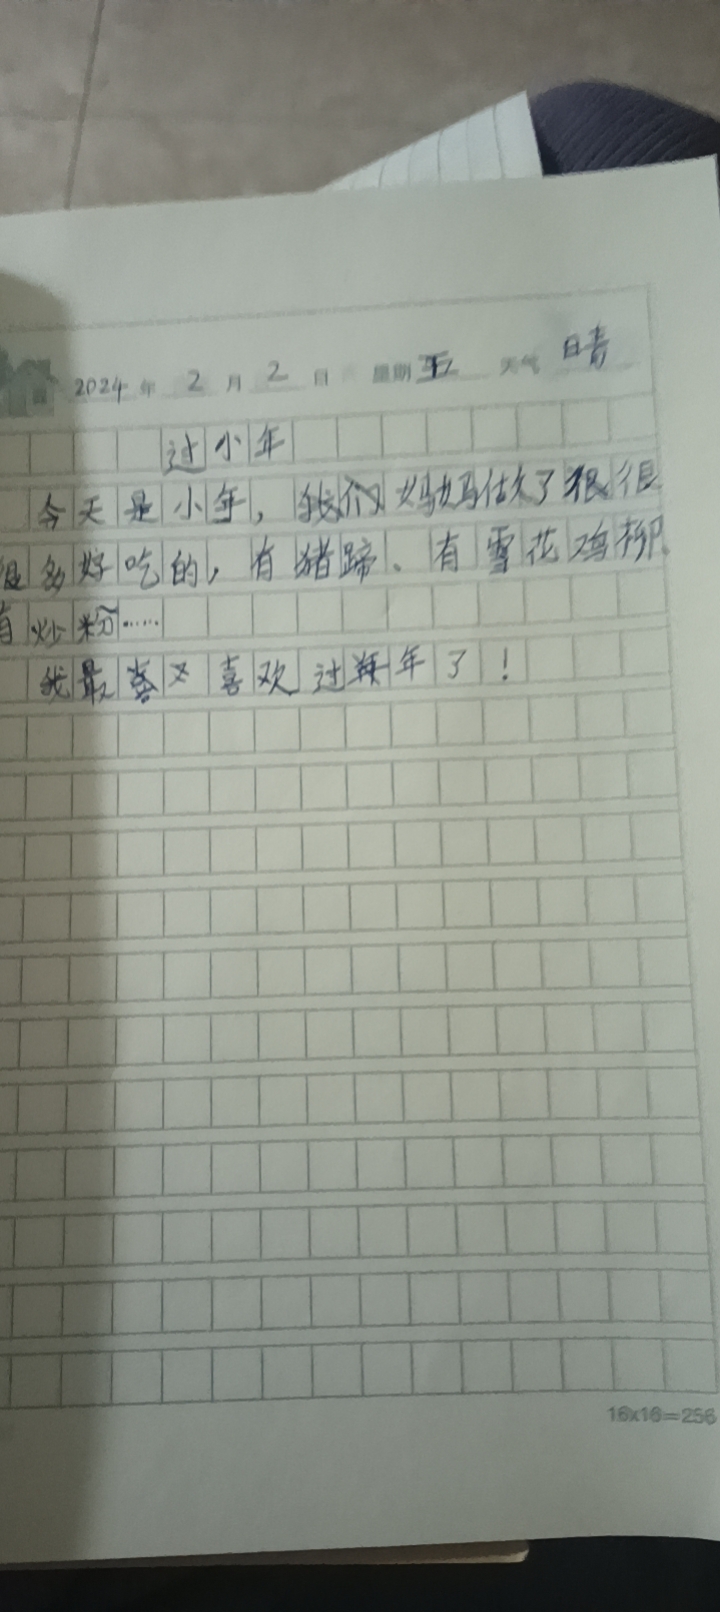 2024年 2月 2日 星期五 天气 晴
过小年
今天是小年，我们妈妈做了很很
很多好吃的，有猪蹄、有雪花鸡柳、
有炒粉……
我最喜又喜欢过年了！
16x16=256